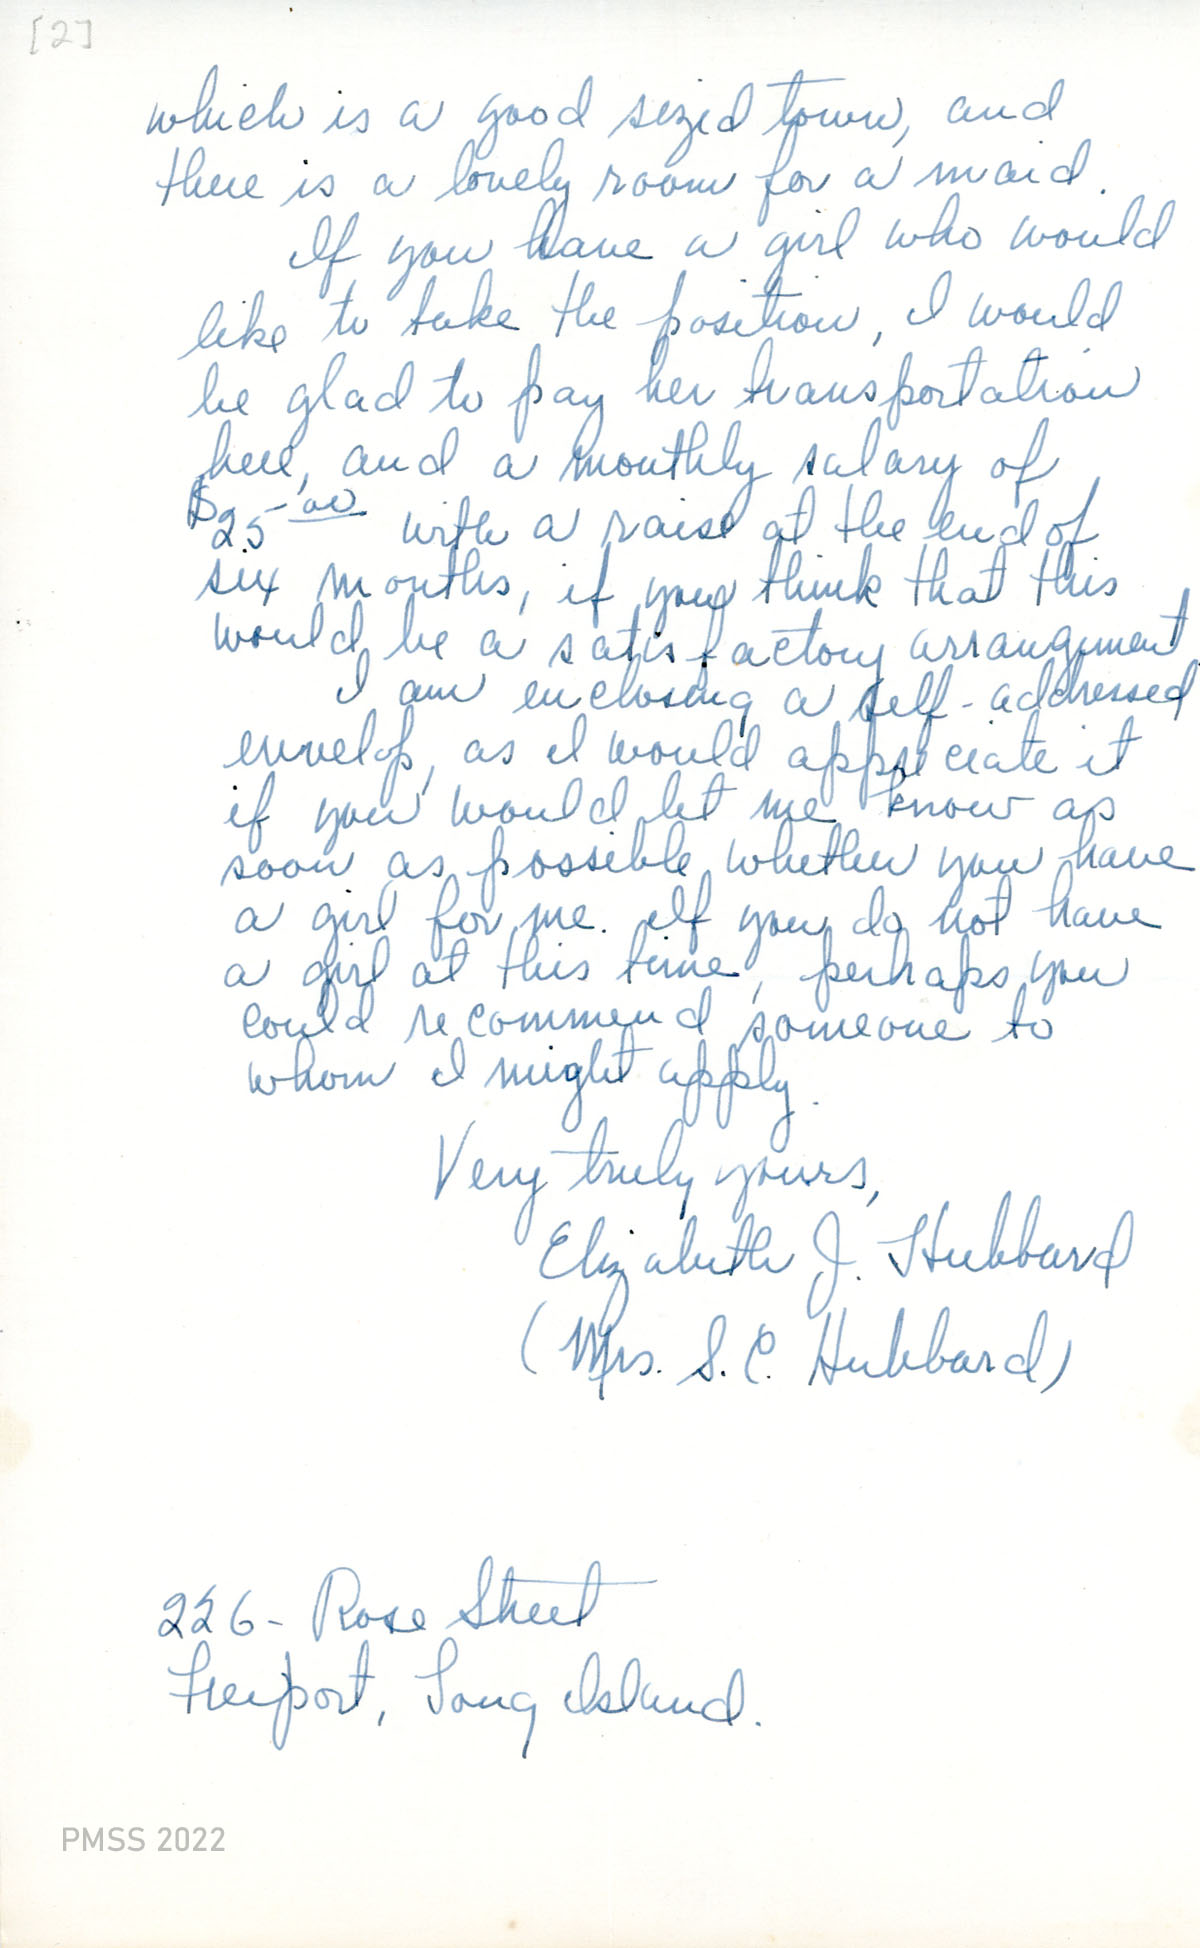 [2]
which is a good sezed town, and
there is a lovely room for a maid.
If you have a girl who would
like to take the position, I would
be glad to pay her transportation
here, and a monthly salary of
$25-00 with a raise at the end of
six months, if you think that this
would be a satisfactory arrangement.
I am enclosing a self-addressed
envelop, as I would appreciate it
if you would let me know as
soon as possible whether you have
a girl for me. If you do not have
a girl at this time, perhaps you
could recommend someone to
whom I might apply.
Very truly yours,
Elizabeth J. Hubbard
(Mrs. S. C. Hubbard)
226- Rose Street
Freeport, Long Island.
PMSS 2022